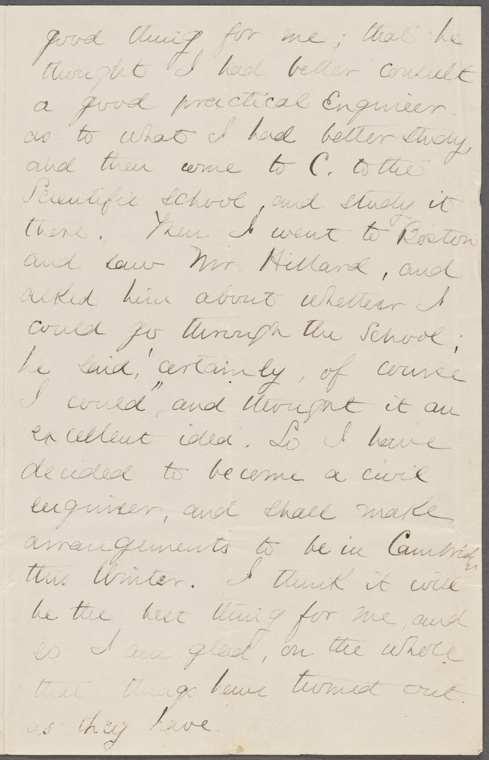 good thing for me; that he
thought I had better consult
a good practical Engineer
as to what I had better study,
and then come to C. to the
Scientific School, and study it
there. Then I went to Boston
and saw Mr. Hillard, and
asked him about whether I
could go through the School;
he said, "certainly, of course
I could", and thought it an
excellent idea. So I have
decided to become a civil
engineer, and shall make
arrangements to be in Cambridge
this Winter. I think it will
be the best thing for me, and
so I am glad, on the whole
that things have turned out
as they have.